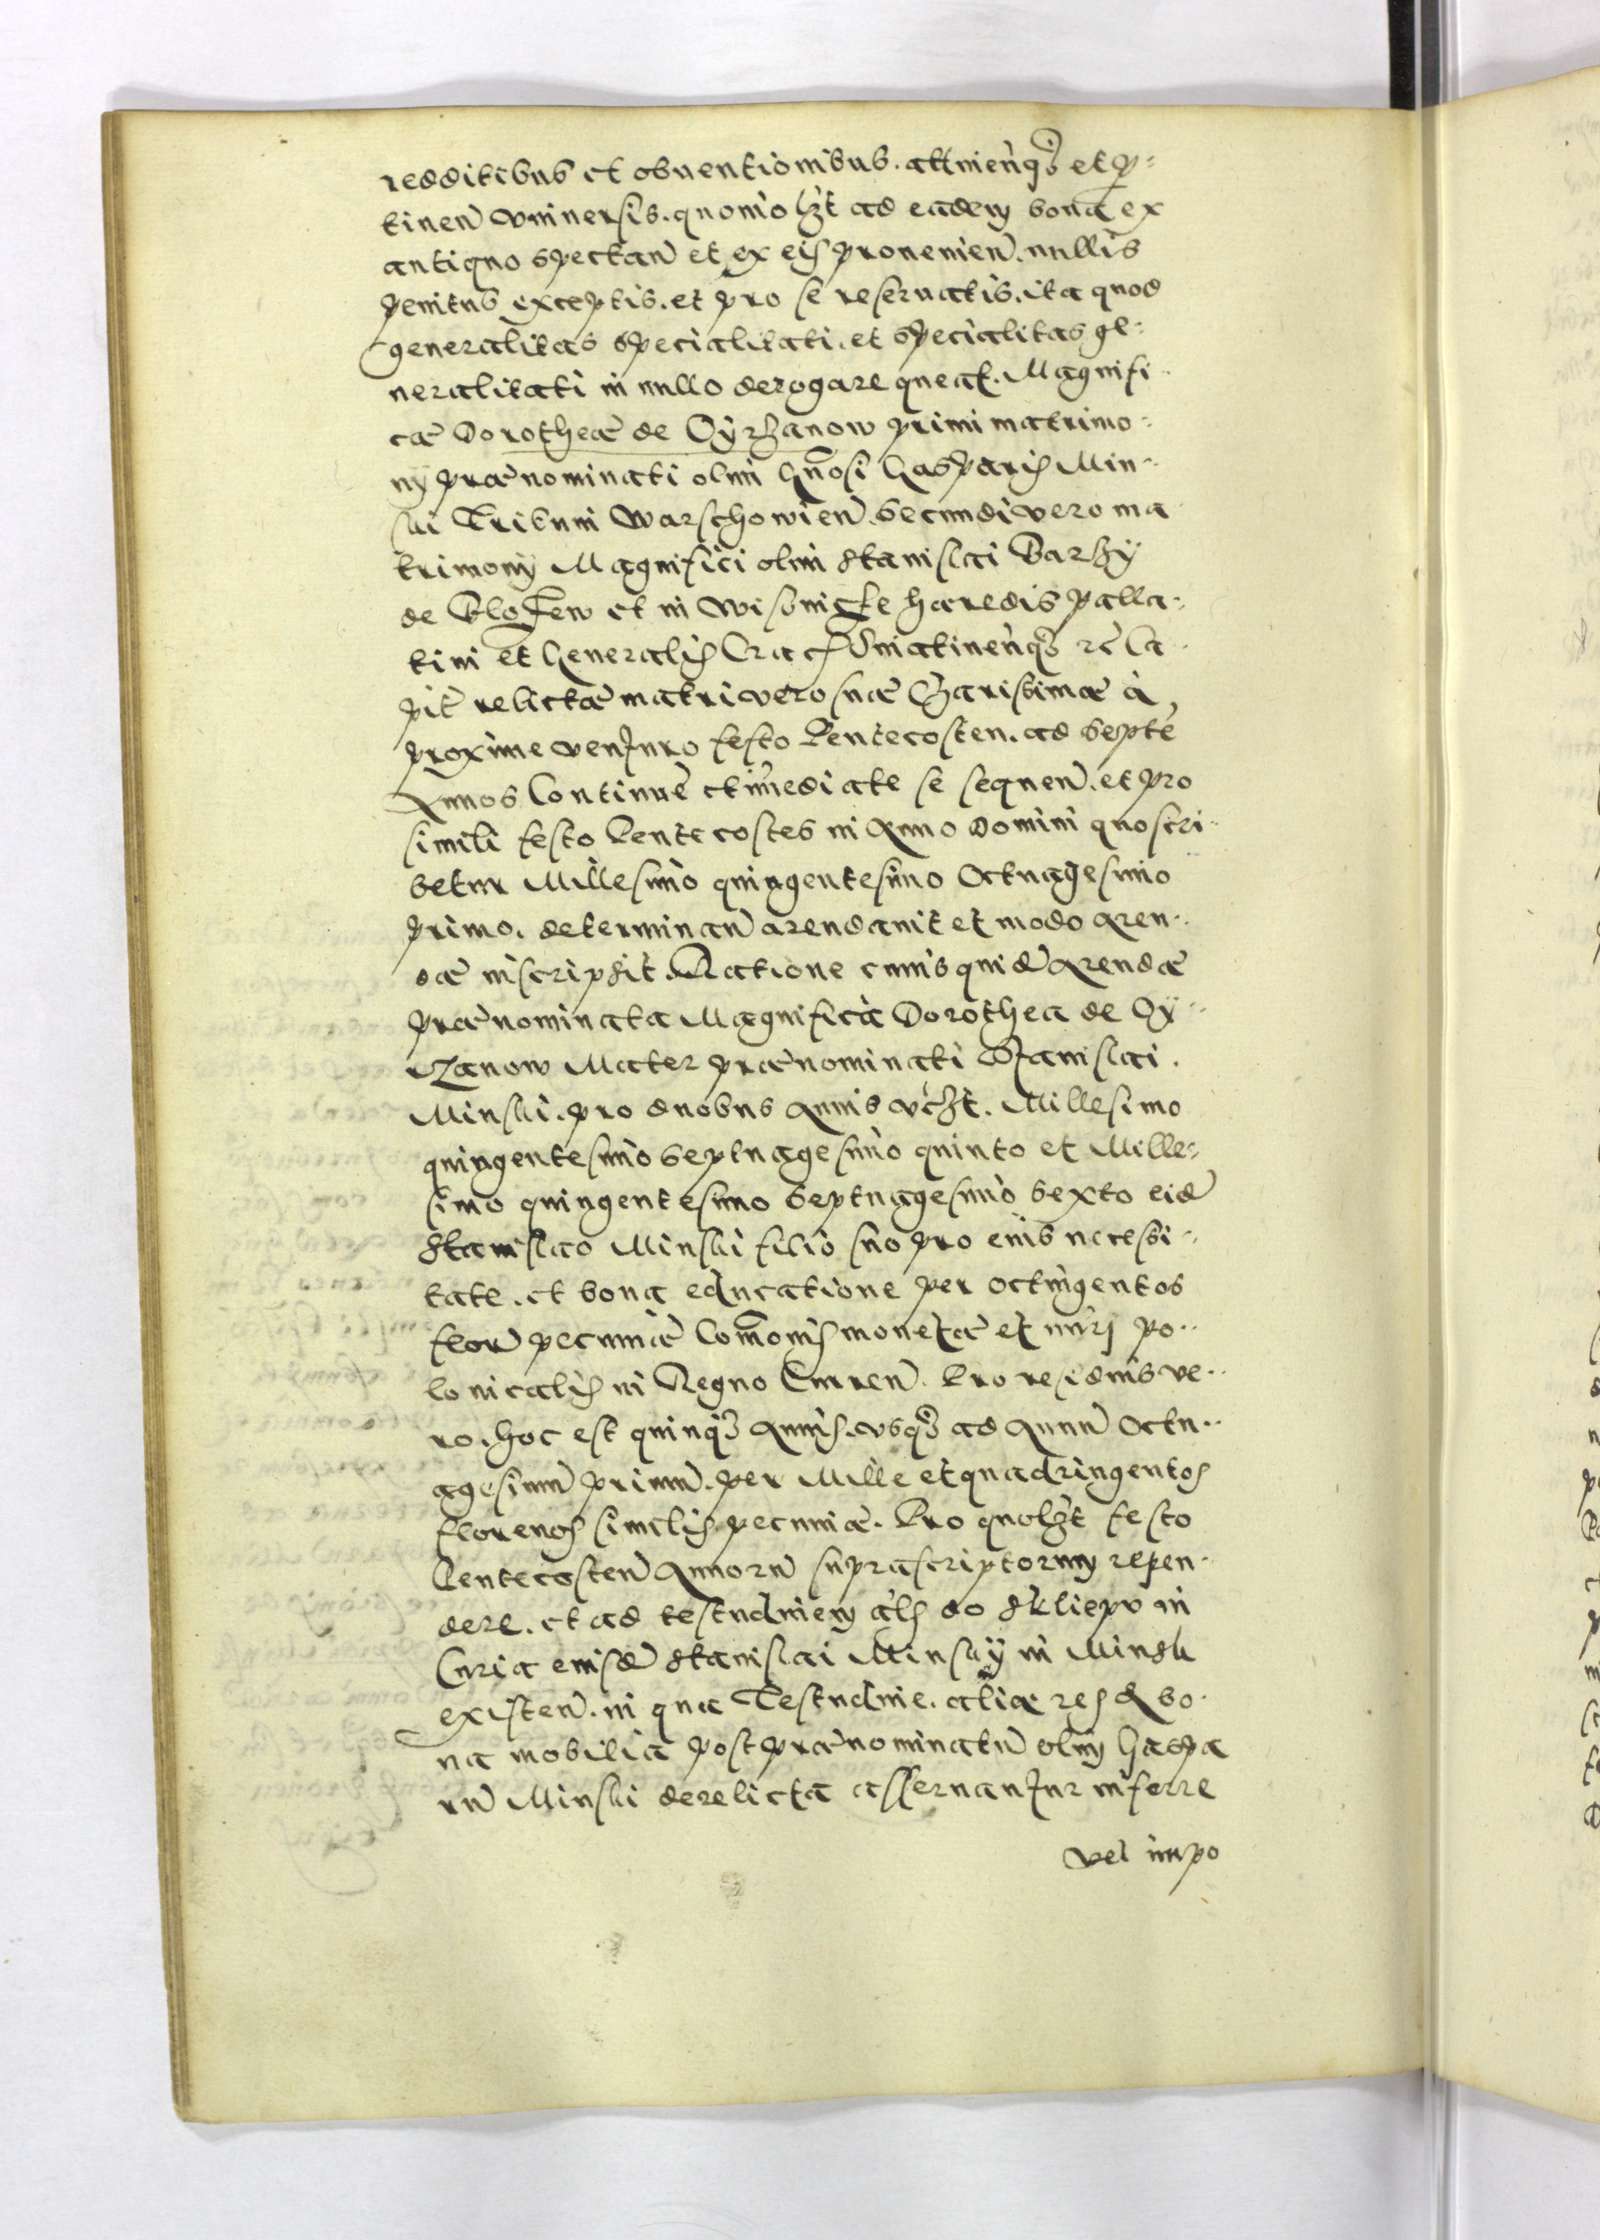 redditibus et obuentionibus. attinen̄q̃ et p-
tinen̄ vniuersis. quomo lzt ad eadem bona ex
antiquo spectan̄ et ex eis prouenien̄. nullis
penitus exceptis. et pro se reseruatis. ita quod
generalitas specialitati. et specialitas ge-
neralitati in nullo derogare queat. Magnifi-
cæ Dorotheæ de Oyrzanow primi matrimo-
nÿ prænominati olim Gn̄osi Gasparis Min-
ski Tribuni Warschowien̄. secundi vero ma
trimonÿ Magnifici olim Stanislai Barzÿ
de et in Wisnicze hæredis Palla-
tini et Generalis Crac̄
relictæ matri vero suæ Charissimæ à
proxime venturo festo Pentecosten. ad septē
Annos Continuè et īmediate se sequen̄. et pro
simili festo Pentecostes in Anno Domini quo scri-
betur Millesimo quingentesimo Octuagesimo
primo. determinan̄ arendauit et modo Aren-
dæ inscripsit. Ratione cuius quidē Arendæ
prænominata Magnifica Dorothea de Oy-
rzanow Mater prænominati Stanislai.
Minski. pro duobus Annis vczt. Millesimo
quingentesimo septuagesimo quinto et Mille-
simo quingentesimo septuagesimo sexto eidē
Stanislao Minski filio suo pro eius necessi-
tate. et bona educatione per octingentos
flor̄ pecuniæ Com̄onis monetæ et nūri po-
lonicalis in Regno Curren̄. Pro residuis ve-
ro. hoc est quinq̃ Annis. vsq̃ ad Annū Octu-
agesimū primū. per Mille et quadringentos
florenos similis pecuniæ. Pro quolzt festo
Pentecosten̄ Annorū suprascriptorum repen-
dere. et ad testudinem al̄s do Skliepu in
Curia eiusdē Stanislai Minskÿ in Minsk
existen̄. in qua Testudine. aliæ res & bo-
na mobilia post prænominatū olim Gaspa
rū Minski derelicta asseruantur inferre
vel impo